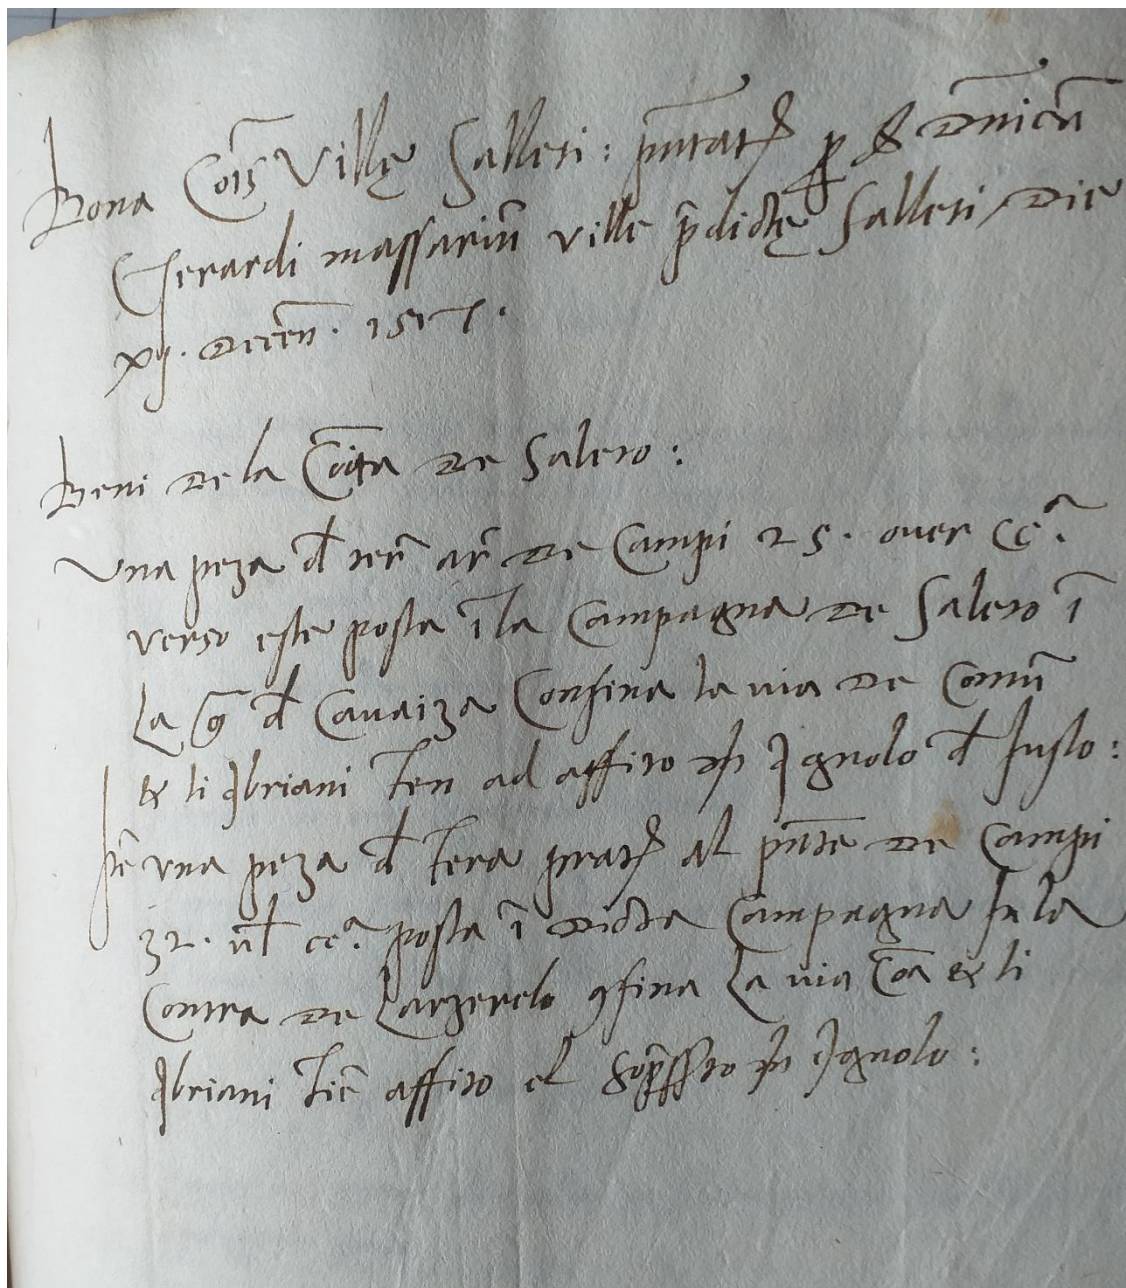 Bona Cõis Villę Salleti: pñtata p S. Dñicũ
Gerardi massariũ ville p̃dictę Salleti Die
xij. Decẽn. 1517.
Beni de la Cõita de Saleto:
Una peza d terr̃ ar̃ de Campi 25. over cc.ª
verso este posta ĩ la Campagna de Saleto ĩ
La d Canaiza Confina la via de Comũ
& li Abriani ten ad affito Agnolo d Iusto:
Itẽ una peza d tera prat. al pñte de Campi
32. ul cc.ª posta ĩ dicta Campagna In la
Contra de Larzerelo 9fina La via Cõa & li
Abriani tiẽ affito el sop̃sto Agnolo: